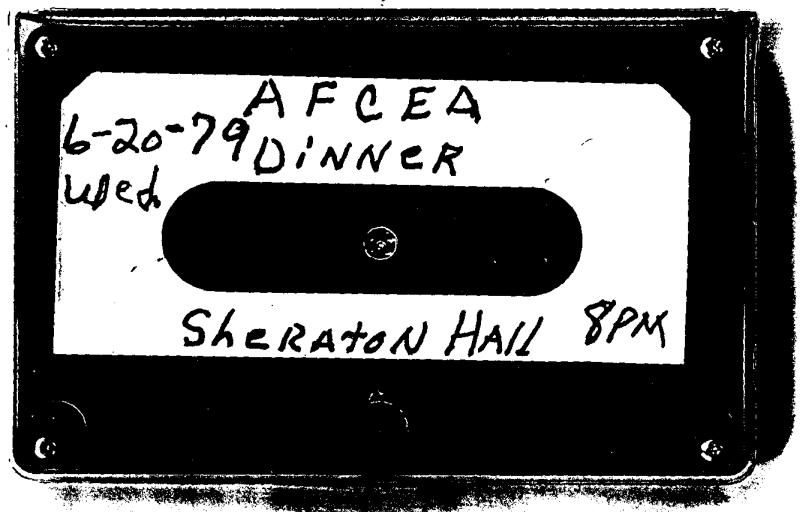 AFCEA
6-20-79 DINNER
Wed
Sheraton Hall 8PM